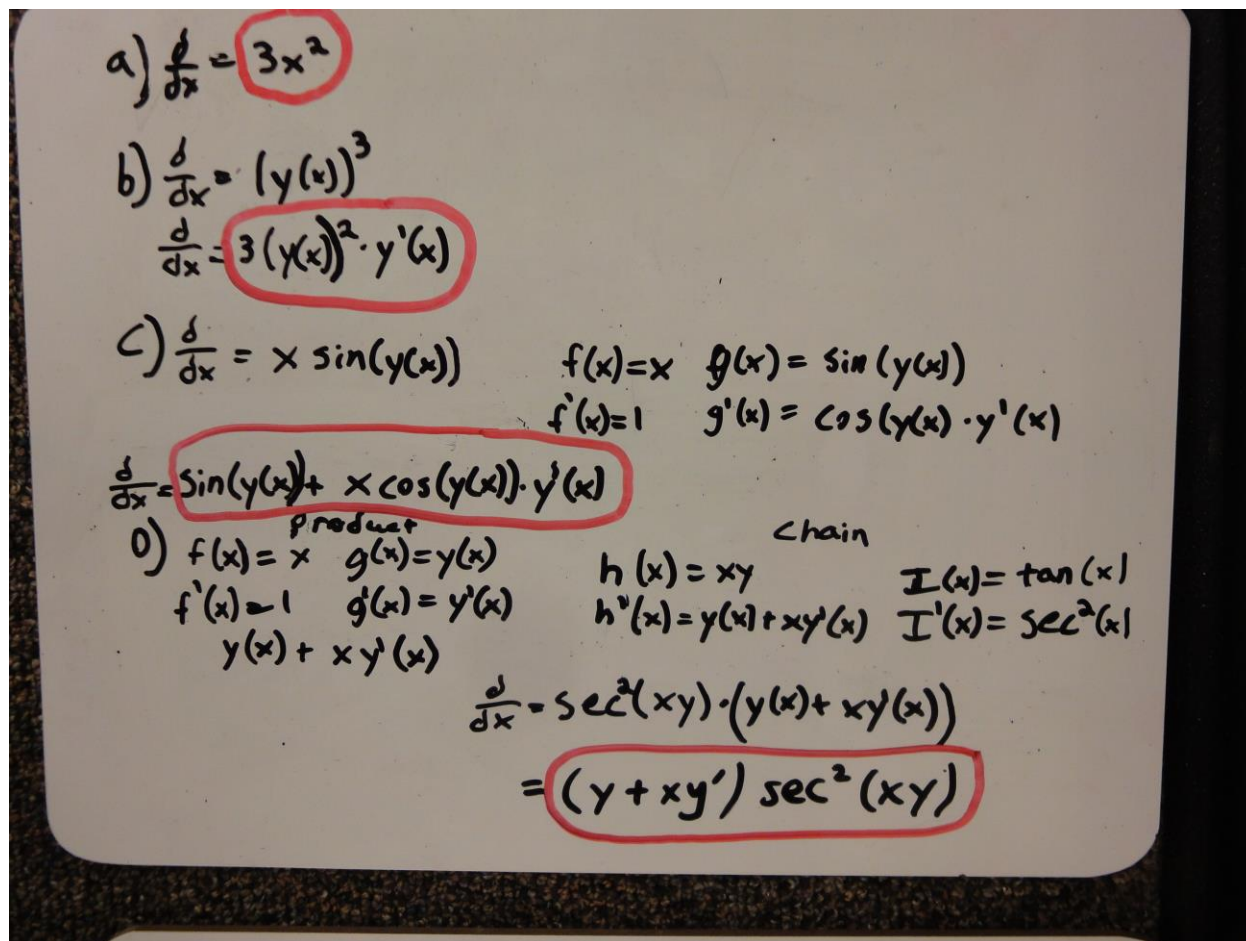 a) d/dx = 3x²
b) d/dx = (y(x))³
d/dx = 3(y(x))² · y'(x)
c) d/dx = x sin(y(x)) f(x)=x g(x) = sin(y(x))
f'(x)=1 g'(x) = cos(y(x) · y'(x)
d/dx = sin(y(x))+ x cos(y(x)) · y'(x)
product chain
D) f(x) = x g(x) = y(x) h(x) = xy I(x) = tan(x)
f'(x) = 1 g'(x) = y'(x) h'(x) = y(x) + xy'(x) I'(x) = sec²(x)
y(x) + xy'(x)
d/dx = sec²(xy) · (y(x) + xy'(x))
= (y + xy') sec²(xy)